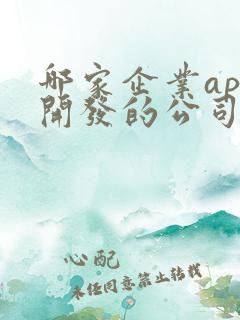 哪家企業ap
開發的公司
心配
未任同意禁止转载